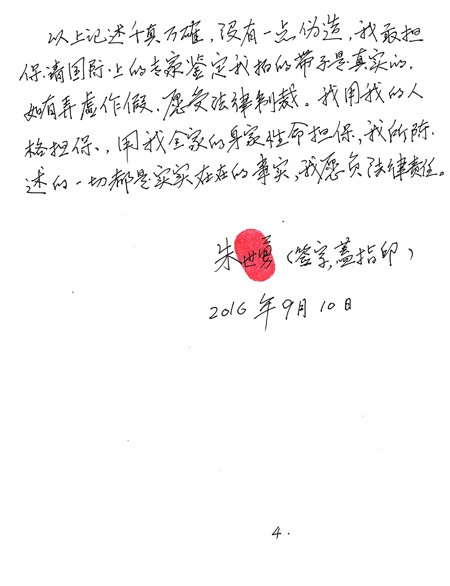 以上记述千真万確，没有一点伪造，我敢担
保.请国际上的专家鉴定我拍的带子是真实的，
如有弄虚作假、愿受法律制裁。我用我的人
格担保、用我全家的身家性命担保，我所陈
述的一切都是实实在在的事实，我愿负法律责任。
朱世勇（签字，蓋指印）
2016年9月10日
4.